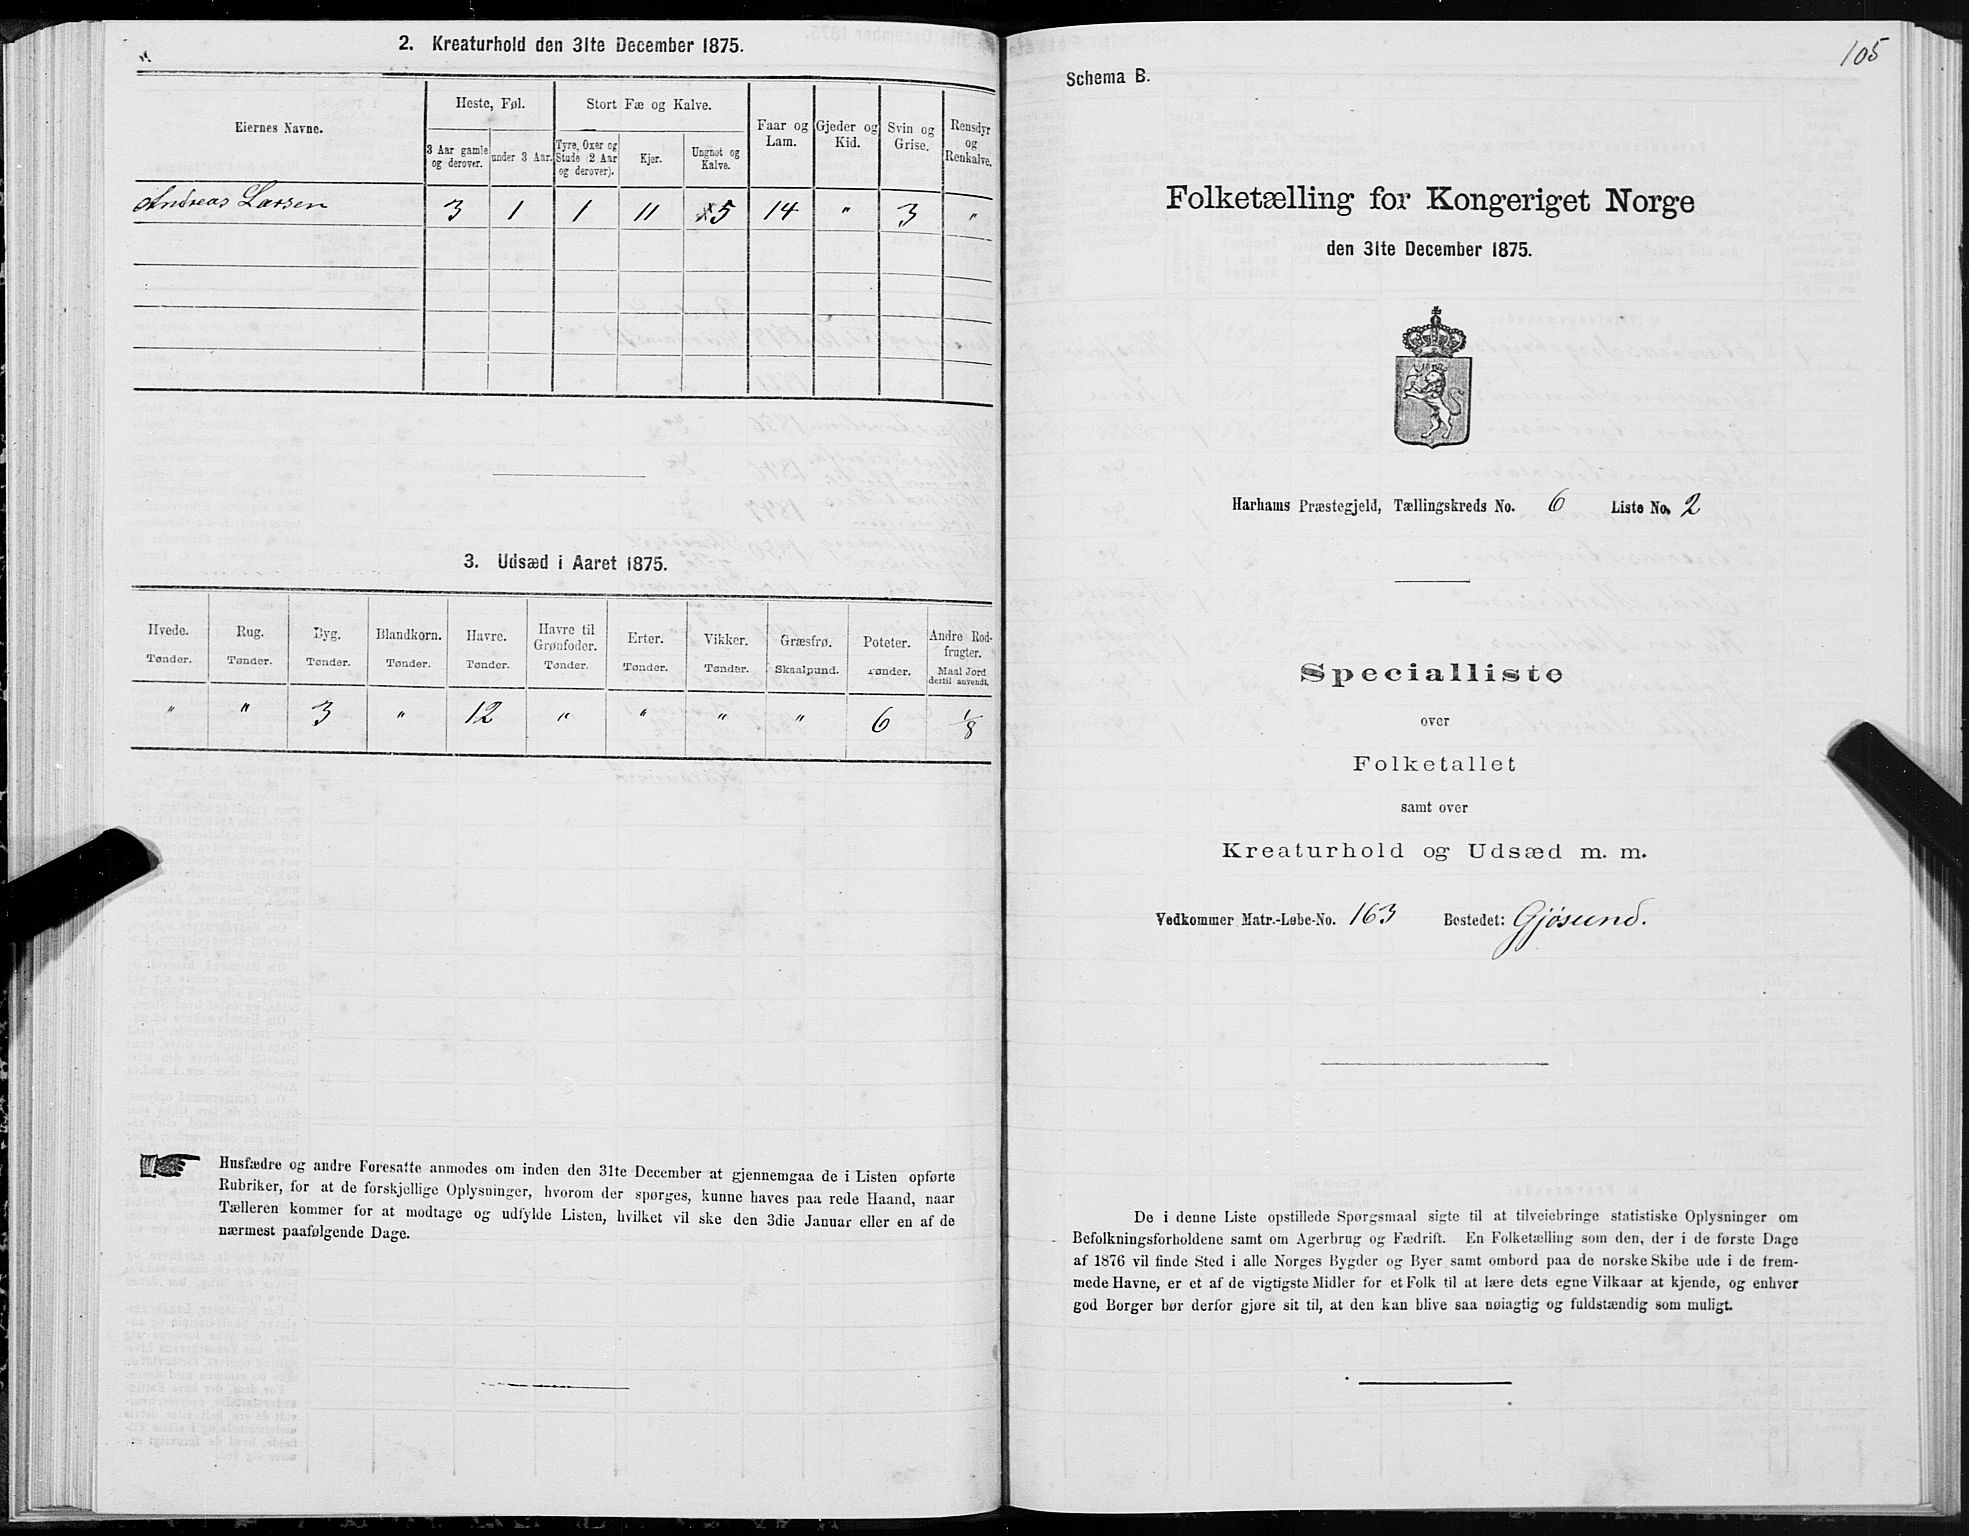 2. Kreaturhold den 31te December 1875.
Eiernes Navne.
Heste, Føl.
Stort Fæ og Kalve.
Faar og Lam.
Gjeder og Kid.
Svin og Grise.
Rensdyr og Renkalve.
3 Aar gamle og derover.
under 3 Aar.
Tyre, Oxer og Stude (2 Aar og derover).
Kjør.
Ungnøt og Kalve.
Andreas Larsen 3 1 1 11 5 14 " 3 "
3. Udsæd i Aaret 1875.
Hvede. Rug. Byg. Blandkorn. Havre. Havre til Grønfoder. Erter. Vikker. Græsfrø. Poteter. Andre Rodfrugter.
Tønder. Tønder. Tønder. Tønder. Tønder. Tønder. Tønder. Tønder. Skaalpund. Tønder. Maal Jord dertil anvendt.
" " 3 " 12 " " " " 6 1/8
Husfædre og andre Foresatte anmodes om inden den 31te December at gjennemgaa de i Listen opførte
Rubriker, for at de forskjellige Oplysninger, hvorom der spørges, kunne haves paa rede Haand, naar
Tælleren kommer for at modtage og udfylde Listen, hvilket vil ske den 3die Januar eller en af de
nærmest paafølgende Dage.
105
Schema B.
Folketælling for Kongeriget Norge
den 31te December 1875.
Harhams Præstegjeld, Tællingskreds No. 6 Liste No. 2
Specialliste
over
Folketallet
samt over
Kreaturhold og Udsæd m. m.
Vedkommer Matr.-Løbe-No. 163 Bostedet: Gjøsund.
De i denne Liste opstillede Spørgsmaal sigte til at tilveiebringe statistiske Oplysninger om
Befolkningsforholdene samt om Agerbrug og Fædrift. En Folketælling som den, der i de første Dage
af 1876 vil finde Sted i alle Norges Bygder og Byer samt ombord paa de norske Skibe ude i de frem-
mede Havne, er et af de vigtigste Midler for et Folk til at lære dets egne Vilkaar at kjende, og enhver
god Borger bør derfor gjøre sit til, at den kan blive saa nøiagtig og fuldstændig som muligt.